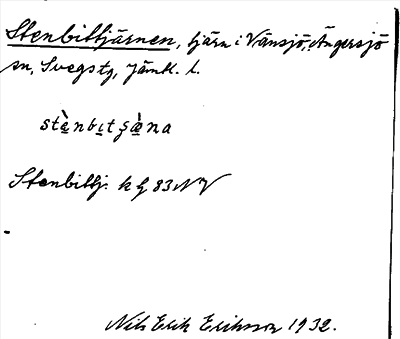 Stenbittjärnen, tjärn i Vänsjö, Ängersjö
sn, Svegs tg, Jämtl. l.
stæ̀nbɩtʂæ̀na
Stenbittj. k G 83 NV
Nils Erik Eriksson 1932.